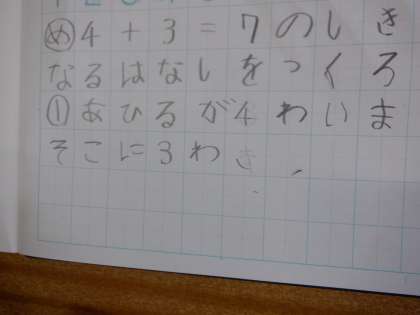 め 4+3=7のしき
なるはなしをつくろ
① あひるが4わいま
そこに3わき